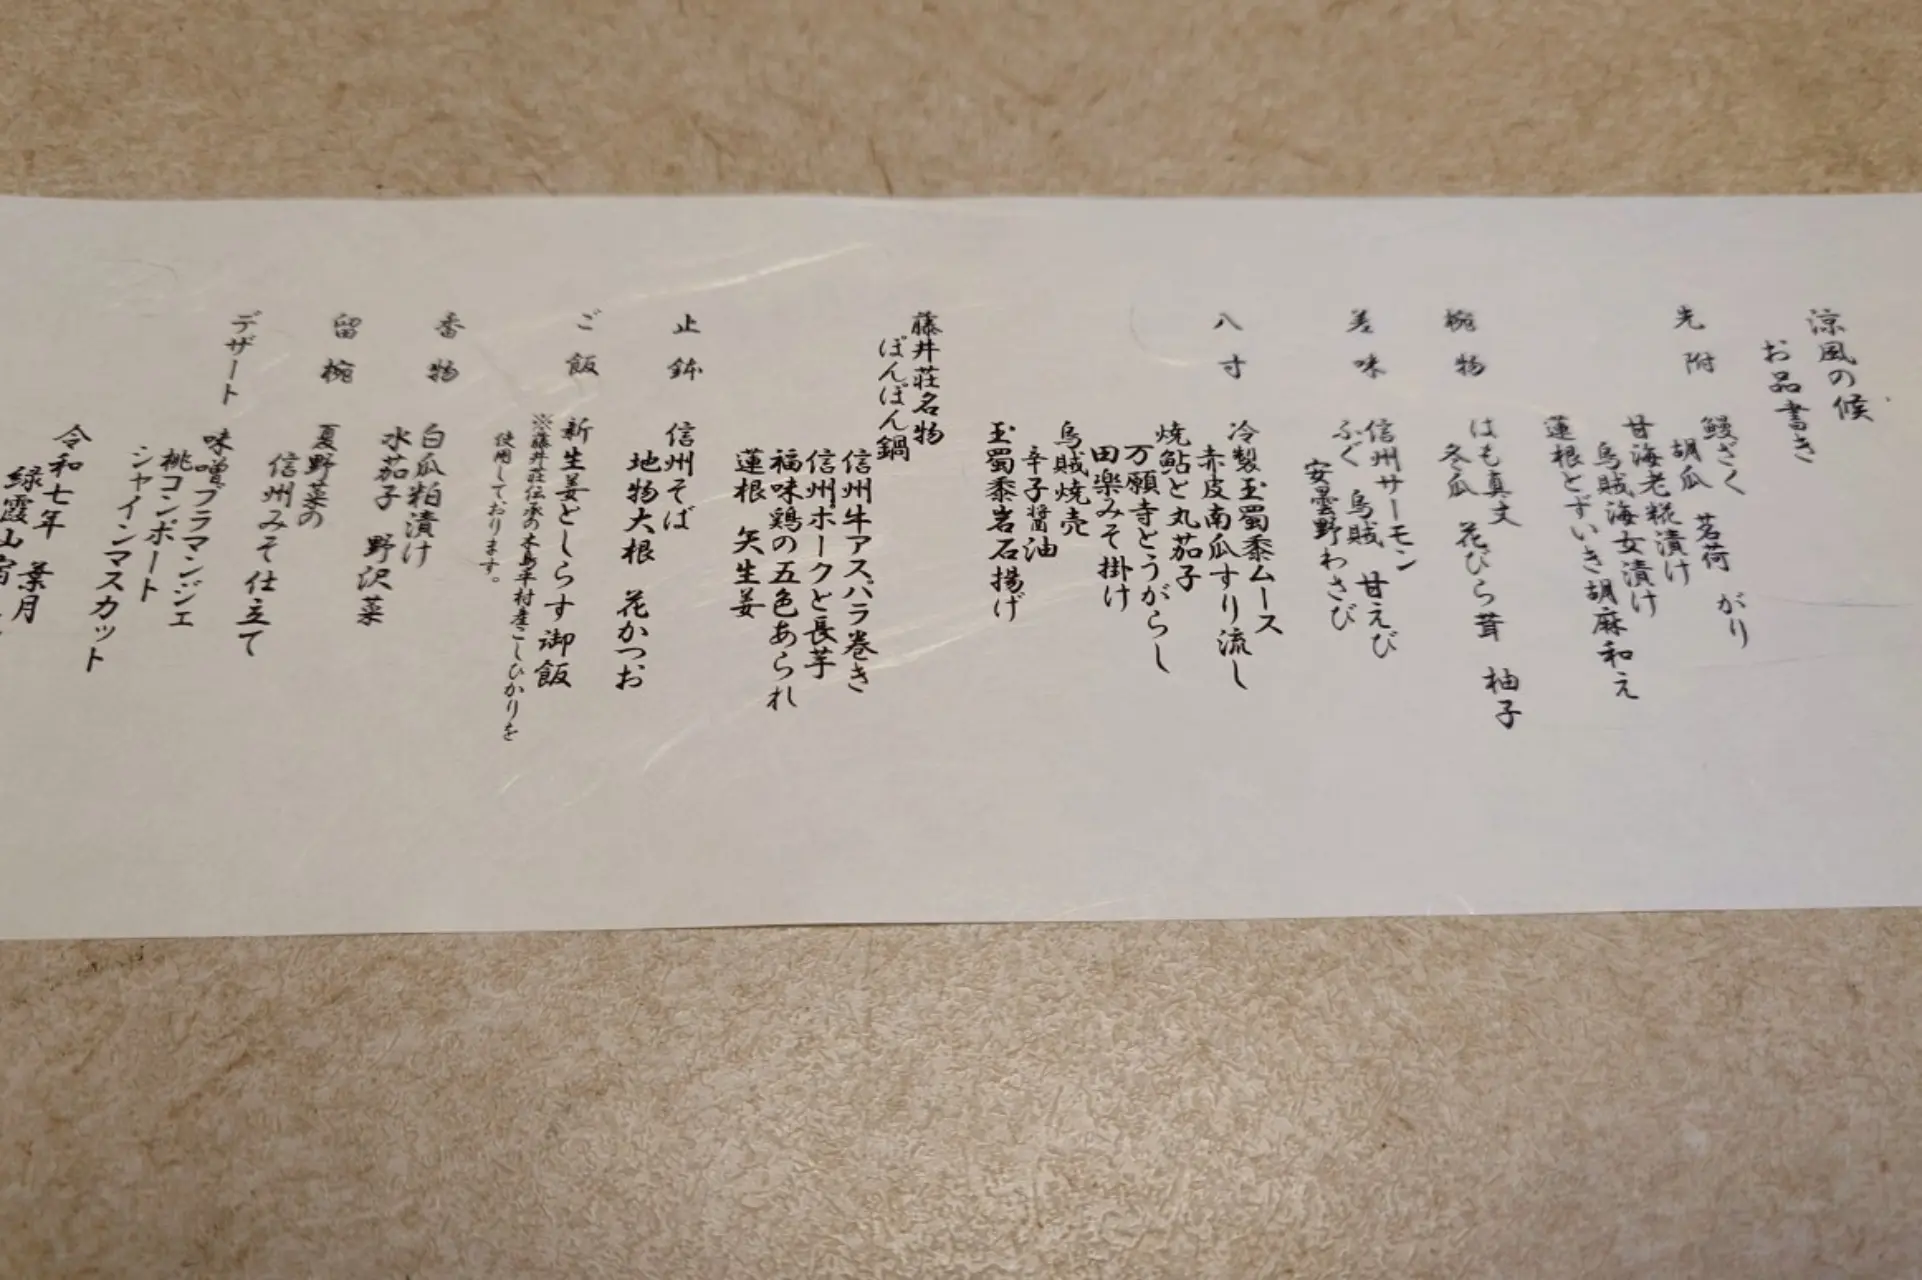 涼風の候
お品書き
先附
鰻ざく
胡瓜 茗荷 がり
甘海老糀漬け
烏賊海女漬け
蓮根とずいき胡麻和え
椀物
はも真丈
冬瓜 花びら茸 柚子
差味
信州サーモン
ふぐ 烏賊 甘えび
安曇野わさび
八寸
冷製玉蜀黍ムース
赤皮南瓜すり流し
焼鮎と丸茄子
万願寺とうがらし
田楽みそ掛け
烏賊焼売
辛子醤油
玉蜀黍岩石揚げ
藤井荘名物
ぼんぼん鍋
信州牛アスパラ巻き
信州ポークと長芋
福味鶏の五色あられ
蓮根 矢生姜
止鉢
信州そば
地物大根 花かつお
ご飯
新生姜としらす御飯
※藤井荘伝承の木島平村産こしひかりを
使用しております。
香物
白瓜粕漬け
水茄子 野沢菜
留椀
夏野菜の
信州みそ仕立て
デザート
味噌ブラマンジェ
桃コンポート
シャインマスカット
令和七年 葉月
緑霞山宿